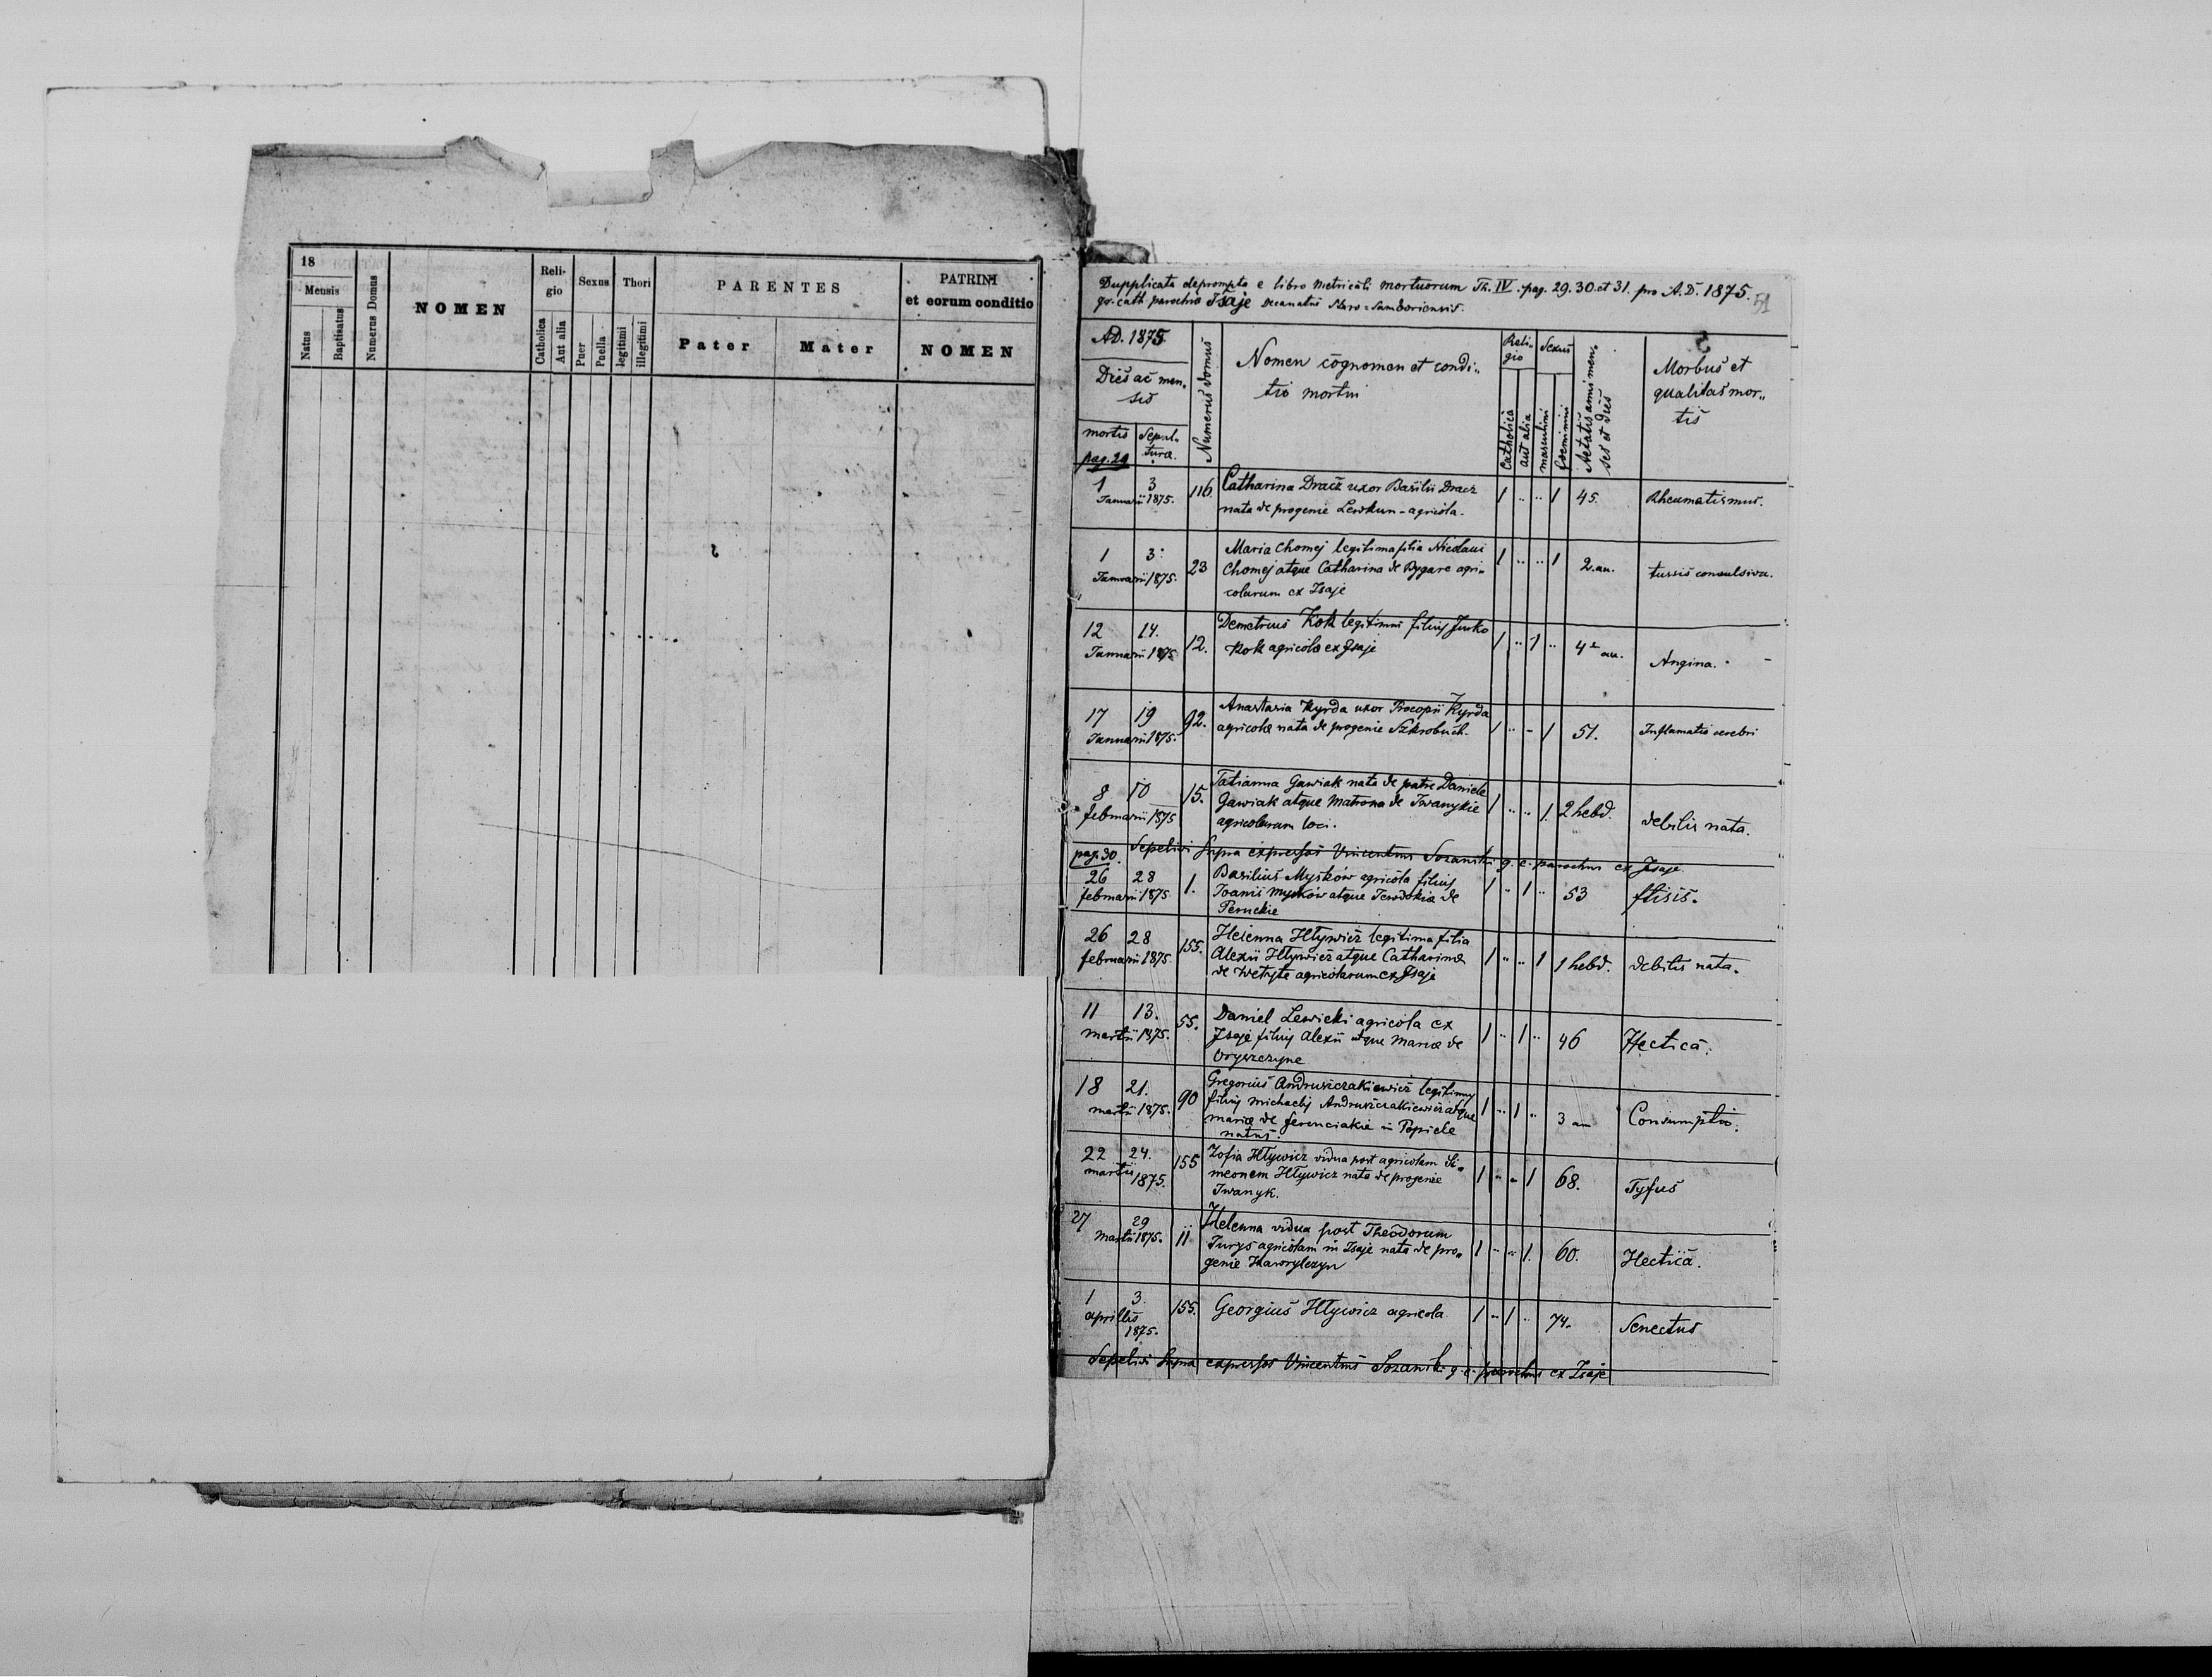 18
Mensis
Natus
Baptisatus
Numerus Domus
NOMEN
Reli-
gio
Catholica
Aut alia
Sexus
Puer
Puella
Thori
legitimi
illegitimi
PARENTES
Pater
Mater
PATRINI
et eorum conditio
NOMEN
Dupplicata deprompta e libro metricali mortuorum Th. IV. pag. 29. 30. et 31. pro A.D. 1875.
gr. cath. parochia Isaje Decanatus Staro-Samboriensis.
51
AD. 1875
Dies ac men„
sis
mortis
Sepul„
turæ
pag. 29
Numerus domus
Nomen cognomen et condi„
tio mortui
Reli„
gio
Catholica
aut alia
Sexus
masculini
foeminini
Aetatis anni men„
ses et dies
Morbus et
qualitas mor„
tis
1 3
Januarii 1875. 116. Catharina Dracz uxor Basilii Dracz 1 „ „ 1 45. Rheumatismus.
nata de progenie Lewkun - agricola.
1 3
Januarii 1875. 23 Maria Chomej legitima filia Nicolai 1 „ „ 1 2. an. tussis convulsiva.
Chomej atque Catharina de Rygare agri„
colarum ex Isaje
12 14.
Januarii 1875 12. Demetrius Kok legitimus filius Jurko 1 „ 1 „ 4 an. Angina.
Kok agricola ex Isaje
17 19
Januarii 1875. 92. Anastasia Kyrda uxor Procopii Kyrda 1 „ - 1 51. Inflamatio cerebri
agricola nata de progenie Szkrobuch.
8 10
februarii 1875 15. Tatianna Gawiak nata de patre Daniele 1 „ „ 1. 2 hebd. debilis nata.
Gawiak atque Matrona de Iwanykie
agricolarum loci.
pag. 30. Sepelivi supra expressos Vincentius Sozanski g. c. parochus ex Isaje
26 28
februarii 1875 1. Basilius Myśków agricola filius 1 „ 1 „ 53 ftisis.
Joanis Myśków atque Tewdokia de
Peruckie
26 28
februarii 1875 155. Helenna Hlywicz legitima filia 1 „ „ 1 1 hebd. debilis nata.
Alexii Hlywicz atque Catharina
de agricolarum ex Isaje
11 13.
martii 1875. 55. Daniel Lewicki agricola ex 1 „ 1 „ 46 Hectica.
Isaje filius Alexii atque Maria de
Oryszczyne
18 21.
martii 1875. 90 Gregorius Andruszczakiewicz legitimus 1 „ 1 „ 3 an Consumptio.
filius Michaelis Andruszczakiewicz atque
maria de ferenciakie in Popiele
natus.
22 24.
martii 1875. 155 Zofia Hlywicz vidua post agricolam Si„ 1 „ „ 1 68. Tyfus
meonem Hlywicz nata de progenie
Iwanyk.
27 29
Martii 1875. 11 Helenna vidua post Theodorum 1 „ „ 1. 60. Hectica.
Jurys agricolam in Isaje nata de pro„
genie Hawrylczyn
1 3.
aprillis
1875. 155. Georgius Hlywicz agricola 1 „ 1 „ 74. Senectus
Sepelivi supra expressos Vincentius Sozanski g. c. parochus ex Isaje